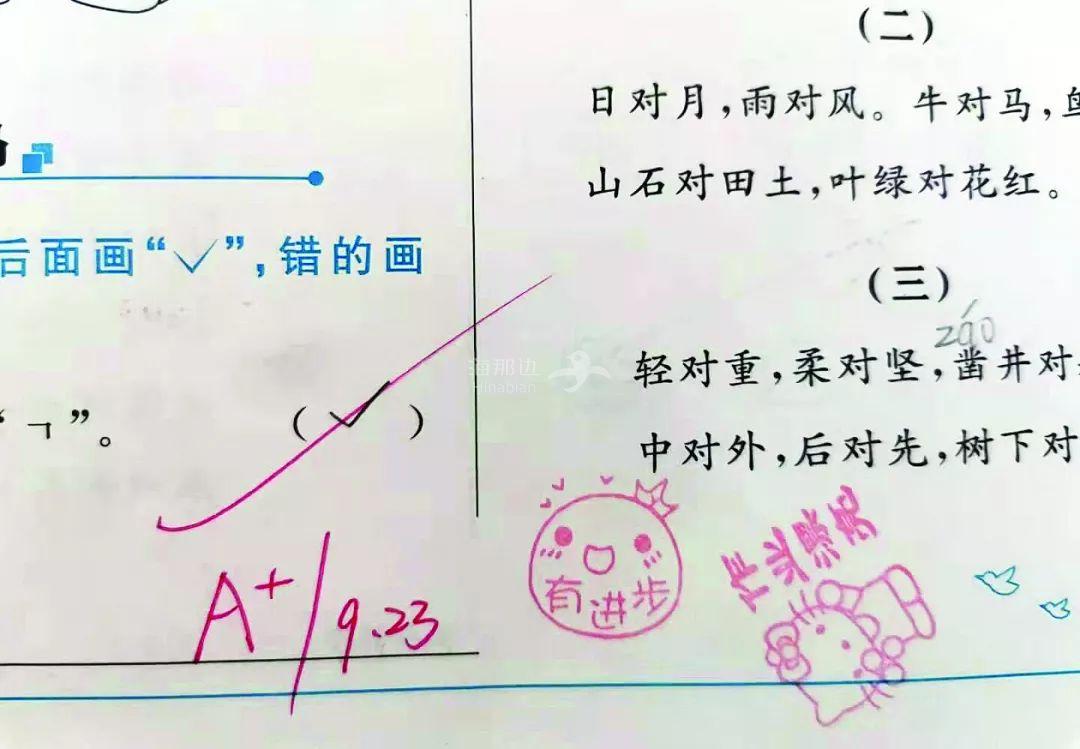 后面画“✓”，错的画
“ㄱ”。 （✓）
A+/9.23
（二）
日对月，雨对风。牛对马，
山石对田土，叶绿对花红。
（三）
záo
轻对重，柔对坚，凿井对
中对外，后对先，树下对
有进步
作业
海那边
Hinabian